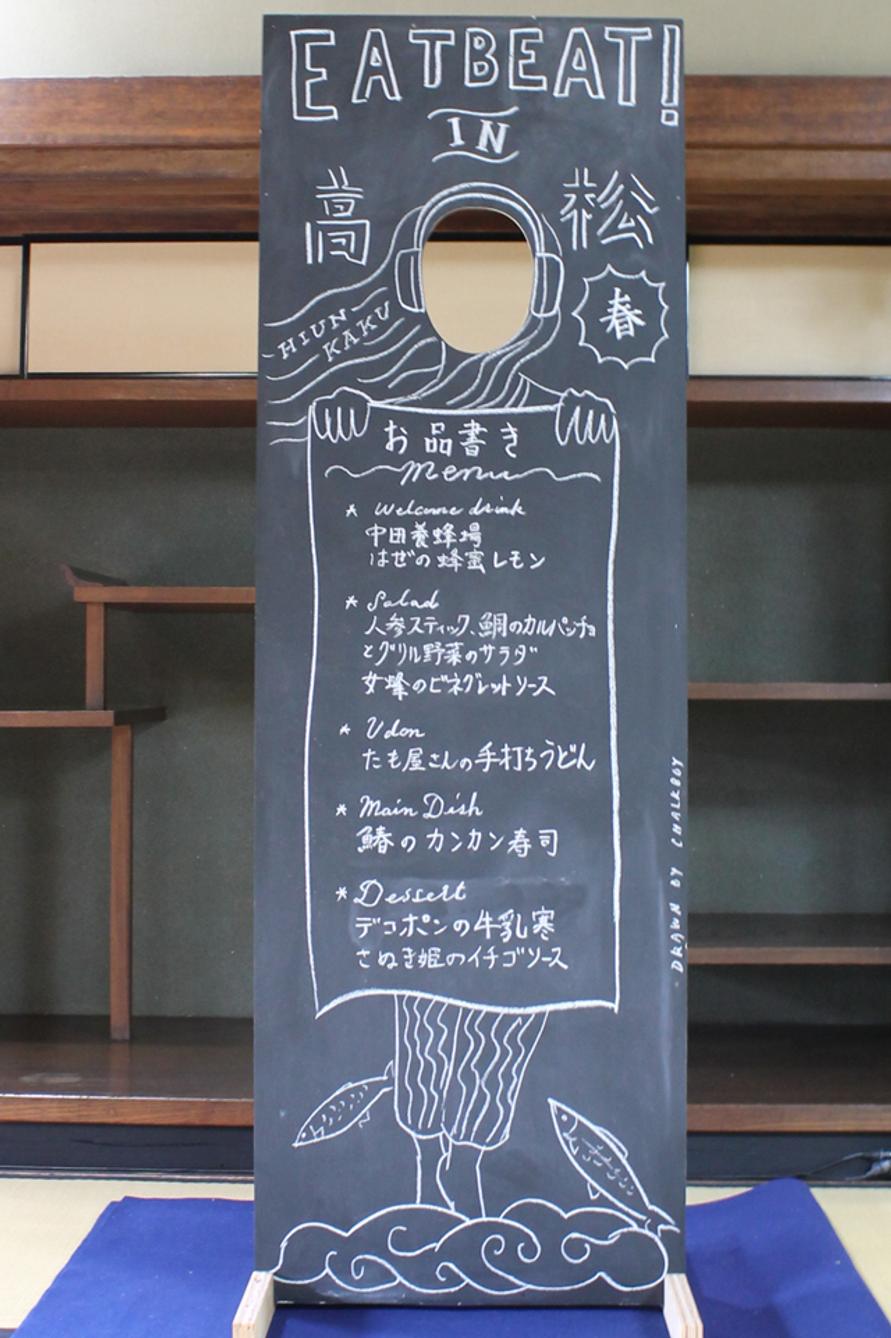 EATBEAT!
IN
高松
春
HIUN-
KAKU
お品書き
menu
* Welcome drink
中田養蜂場
はぜの蜂蜜レモン
* Salad
人参スティック、鯛のカルパッチョ
とグリル野菜のサラダ
女蜂のビネグレットソース
* Udon
たも屋さんの手打ちうどん
* Main Dish
鰆のカンカン寿司
* Dessert
デコポンの牛乳寒
さぬき姫のイチゴソース
DRAWN BY CHALKBOY